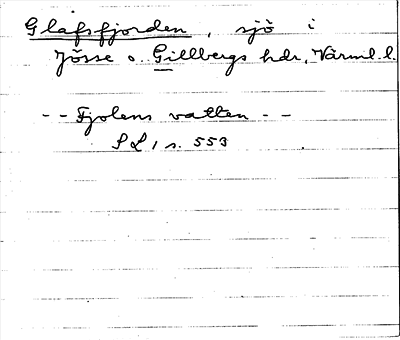 Glafsfjorden, sjö i
Jösse o. Gillbergs hdr, Värml. l.
- - Fjolens vatten - -
SL 1 s. 553